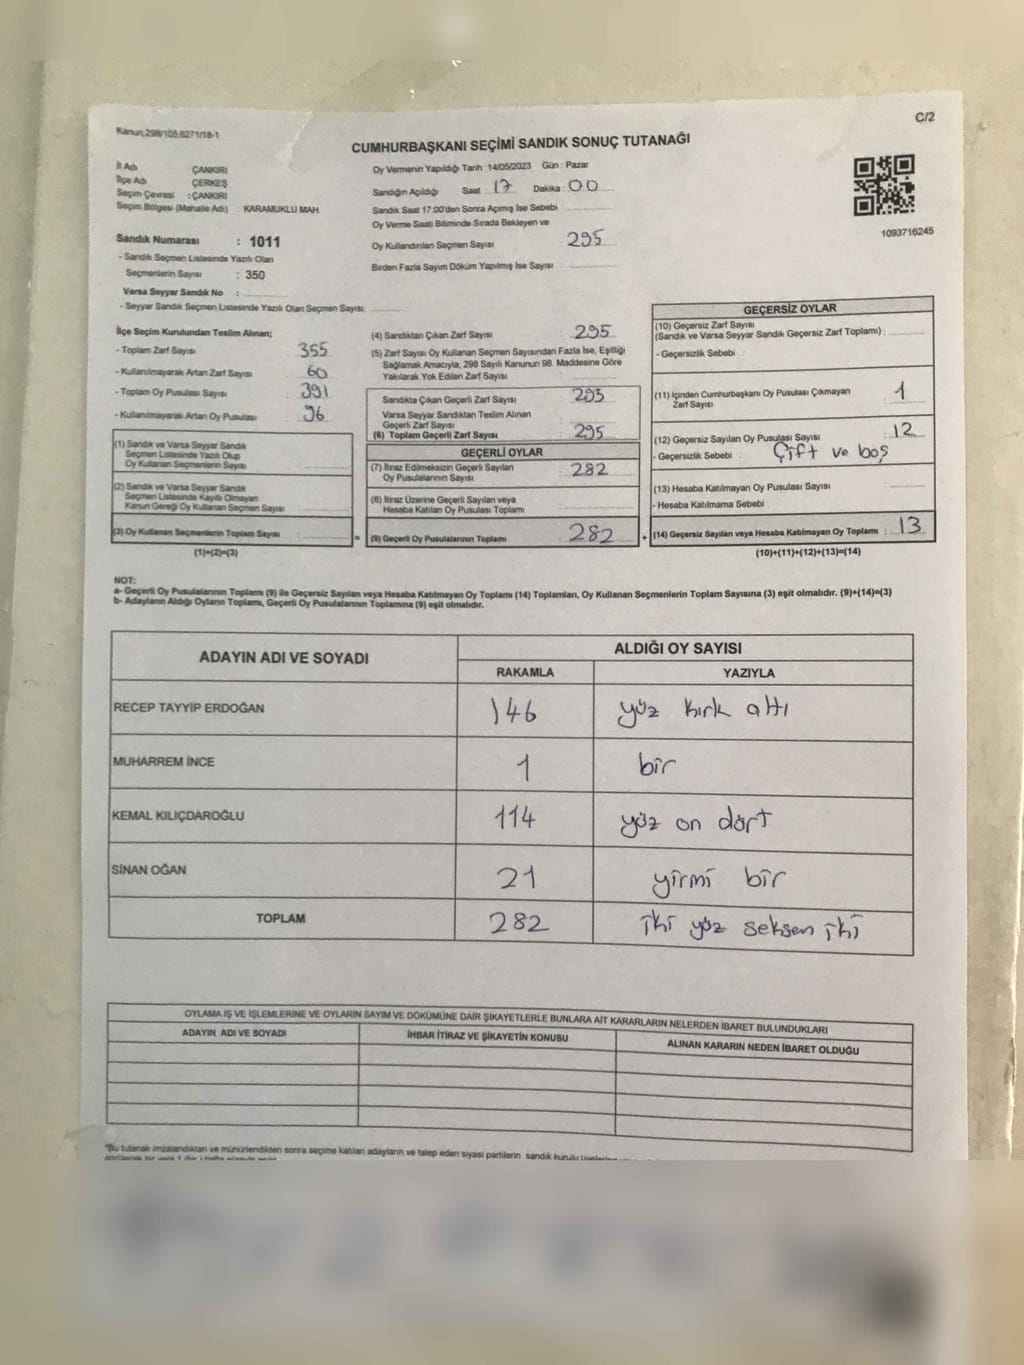 C/2
Kanun,298/105,6271/18-1
CUMHURBAŞKANI SEÇİMİ SANDIK SONUÇ TUTANAĞI
İl Adı : ÇANKIRI
İlçe Adı : ÇERKEŞ
Seçim Çevresi : ÇANKIRI
Seçim Bölgesi (Mahalle Adı) : KARAMUKLU MAH
Oy Vermenin Yapıldığı Tarih :14/05/2023 Gün : Pazar
Sandığın Açıldığı Saat : 17 Dakika : 00
Sandık Saat 17:00'den Sonra Açımış İse Sebebi :
Oy Verme Saati Bitiminde Sırada Bekleyen ve
Oy Kullandırılan Seçmen Sayısı : 295
Birden Fazla Sayım Döküm Yapılmış İse Sayısı :
1093716245
Sandık Numarası : 1011
- Sandık Seçmen Listesinde Yazılı Olan
Seçmenlerin Sayısı : 350
Varsa Seyyar Sandık No :
- Seyyar Sandık Seçmen Listesinde Yazılı Olan Seçmen Sayısı :
İlçe Seçim Kurulundan Teslim Alınan;
- Toplam Zarf Sayısı : 355
- Kullanılmayarak Artan Zarf Sayısı : 60
- Toplam Oy Pusulası Sayısı : 391
- Kullanılmayarak Artan Oy Pusulası : 96
(1) Sandık ve Varsa Seyyar Sandık
Seçmen Listesinde Yazılı Olup
Oy Kullanan Seçmenlerin Sayısı :
(2) Sandık ve Varsa Seyyar Sandık
Seçmen Listesinde Kayıtlı Olmayan
Kanun Gereği Oy Kullanan Seçmen Sayısı :
(3) Oy Kullanan Seçmenlerin Toplam Sayısı :
(1)+(2)=(3)
(4) Sandıktan Çıkan Zarf Sayısı : 295
(5) Zarf Sayısı Oy Kullanan Seçmen Sayısından Fazla İse, Eşitliği
Sağlamak Amacıyla, 298 Sayılı Kanunun 98. Maddesine Göre
Yakılarak Yok Edilen Zarf Sayısı :
Sandıkta Çıkan Geçerli Zarf Sayısı : 295
Varsa Seyyar Sandıktan Teslim Alınan
Geçerli Zarf Sayısı :
(6) Toplam Geçerli Zarf Sayısı : 295
GEÇERLİ OYLAR
(7) İtiraz Edilmeksizin Geçerli Sayılan
Oy Pusulalarının Sayısı : 282
(8) İtiraz Üzerine Geçerli Sayılan veya
Hesaba Katılan Oy Pusulası Toplamı :
(9) Geçerli Oy Pusulalarının Toplamı : 282
GEÇERSİZ OYLAR
(10) Geçersiz Zarf Sayısı
(Sandık ve Varsa Seyyar Sandık Geçersiz Zarf Toplamı) :
- Geçersizlik Sebebi :
(11) İçinden Cumhurbaşkanı Oy Pusulası Çıkmayan
Zarf Sayısı : 1
(12) Geçersiz Sayılan Oy Pusulası Sayısı : 12
- Geçersizlik Sebebi : Çift ve boş
(13) Hesaba Katılmayan Oy Pusulası Sayısı :
- Hesaba Katılmama Sebebi :
(14) Geçersiz Sayılan veya Hesaba Katılmayan Oy Toplamı : 13
(10)+(11)+(12)+(13)=(14)
NOT:
a- Geçerli Oy Pusulalarının Toplamı (9) ile Geçersiz Sayılan veya Hesaba Katılmayan Oy Toplamı (14) Toplamları, Oy Kullanan Seçmenlerin Toplam Sayısına (3) eşit olmalıdır. (9)+(14)=(3)
b- Adayların Aldığı Oyların Toplamı, Geçerli Oy Pusulalarının Toplamına (9) eşit olmalıdır.
ADAYIN ADI VE SOYADI
ALDIĞI OY SAYISI
RAKAMLA YAZIYLA
RECEP TAYYİP ERDOĞAN 146 yüz kırk altı
MUHARREM İNCE 1 bir
KEMAL KILIÇDAROĞLU 114 yüz on dört
SİNAN OĞAN 21 yirmi bir
TOPLAM 282 iki yüz seksen iki
OYLAMA İŞ VE İŞLEMLERİNE VE OYLARIN SAYIM VE DÖKÜMÜNE DAİR ŞİKAYETLERLE BUNLARA AİT KARARLARIN NELERDEN İBARET BULUNDUKLARI
ADAYIN ADI VE SOYADI İHBAR İTİRAZ VE ŞİKAYETİN KONUSU ALINAN KARARIN NEDEN İBARET OLDUĞU
*Bu tutanak imzalandıktan ve mühürlendikten sonra seçime katılan adayların ve talep eden siyasi partilerin sandık kurulu